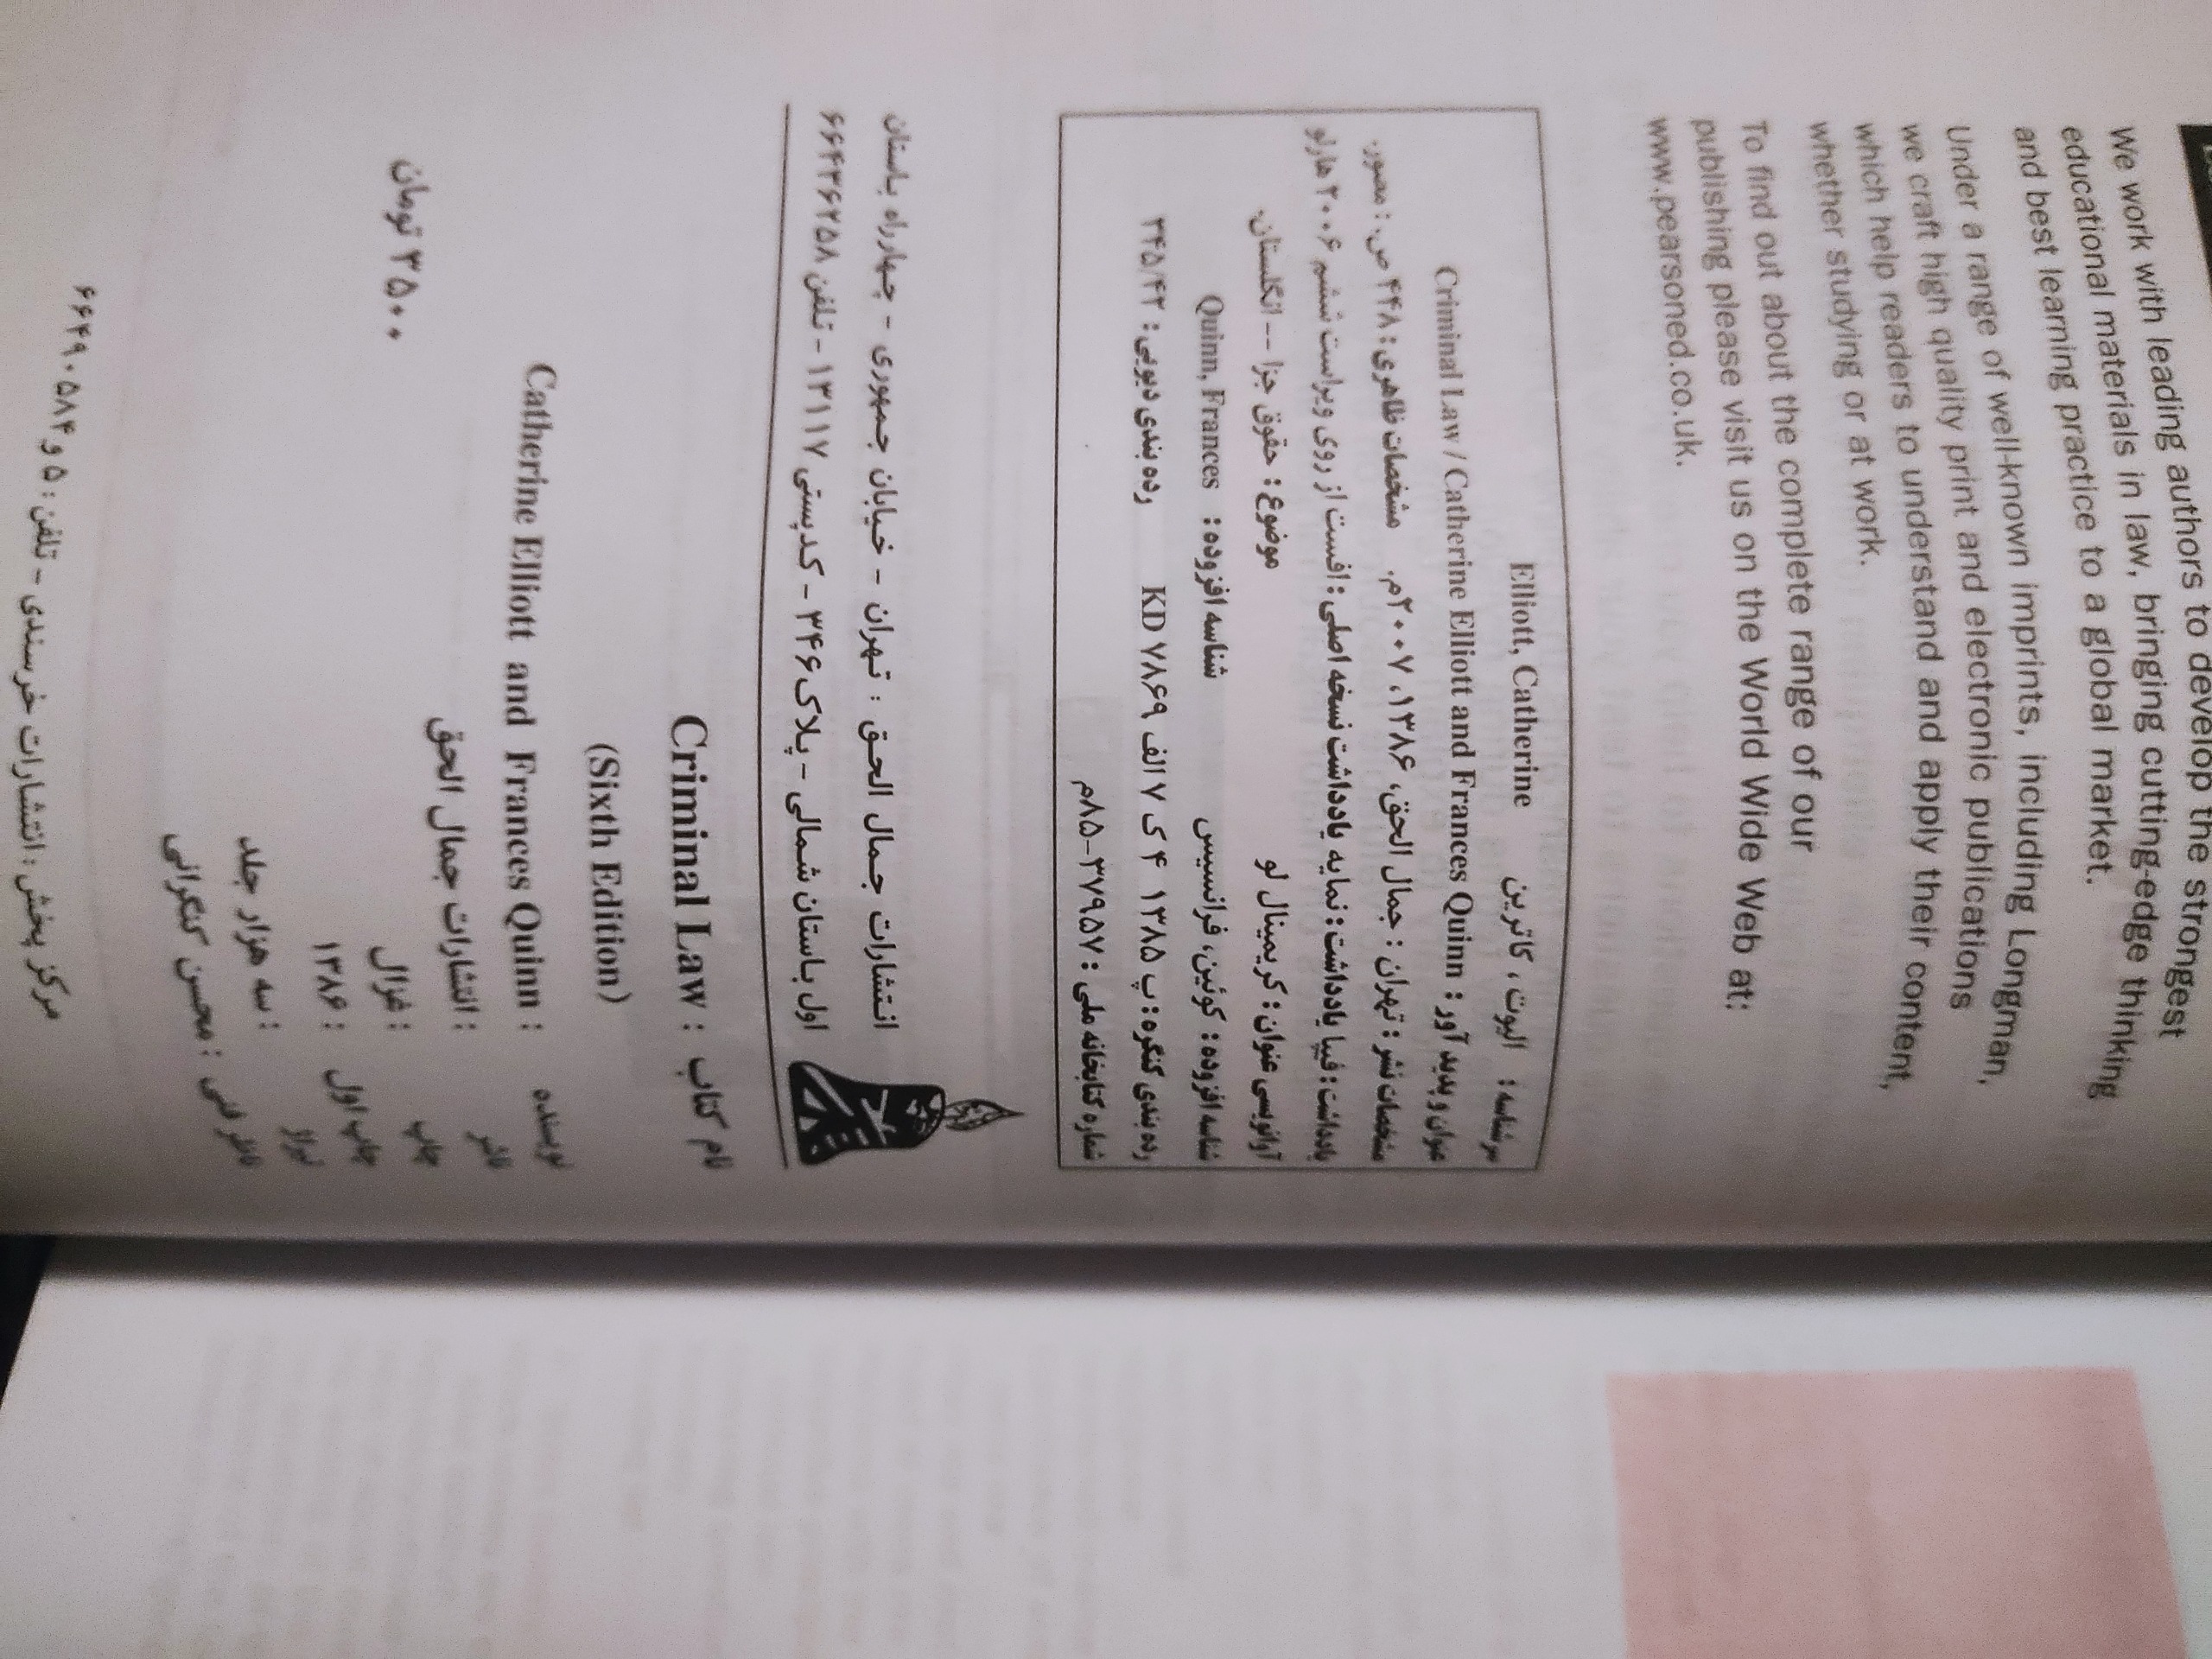 We work with leading authors to develop the strongest
educational materials in law, bringing cutting-edge thinking
and best learning practice to a global market.
Under a range of well-known imprints, including Longman,
we craft high quality print and electronic publications
which help readers to understand and apply their content,
whether studying or at work.
To find out about the complete range of our
publishing please visit us on the World Wide Web at:
www.pearsoned.co.uk.
سرشناسه: الیوت، کاترین Elliott, Catherine
عنوان و پدید آور: Criminal Law / Catherine Elliott and Frances Quinn
مشخصات نشر: تهران: جمال الحق، ۱۳۸۶، ۲۰۰۷م. مشخصات ظاهری: ۴۴۸ ص.: مصور.
یادداشت: فیپا یادداشت: نمایه یادداشت نسخه اصلی: افست از روی ویراست ششم ۲۰۰۶ هارلو
آوانویسی عنوان: کریمینال لو موضوع: حقوق جزا -- انگلستان.
شناسه افزوده: کوئین، فرانسیس شناسه افزوده: Quinn, Frances
رده بندی کنگره: پ ۱۳۸۵ ۴ ک ۷ الف KD ۷۸۶۹ رده بندی دیویی: ۳۴۵/۴۲
شماره کتابخانه ملی: ۳۷۹۵۷-۸۵م
انتشارات جمال الحق: تهران - خیابان جمهوری - چهارراه باستان
اول باستان شمالی - پلاک ۳۴۶ - کدپستی ۱۳۱۱۷ - تلفن ۶۶۴۳۶۲۵۸
نام کتاب: Criminal Law
(Sixth Edition)
نویسنده: Catherine Elliott and Frances Quinn
ناشر: انتشارات جمال الحق
چاپ: غزال
چاپ اول: ۱۳۸۶ ۳۵۰۰ تومان
تیراژ: سه هزار جلد
ناظر فنی: محسن کنگرانی
مرکز پخش: انتشارات خرسندی - تلفن: ۵ و ۶۶۴۹۰۵۸۴